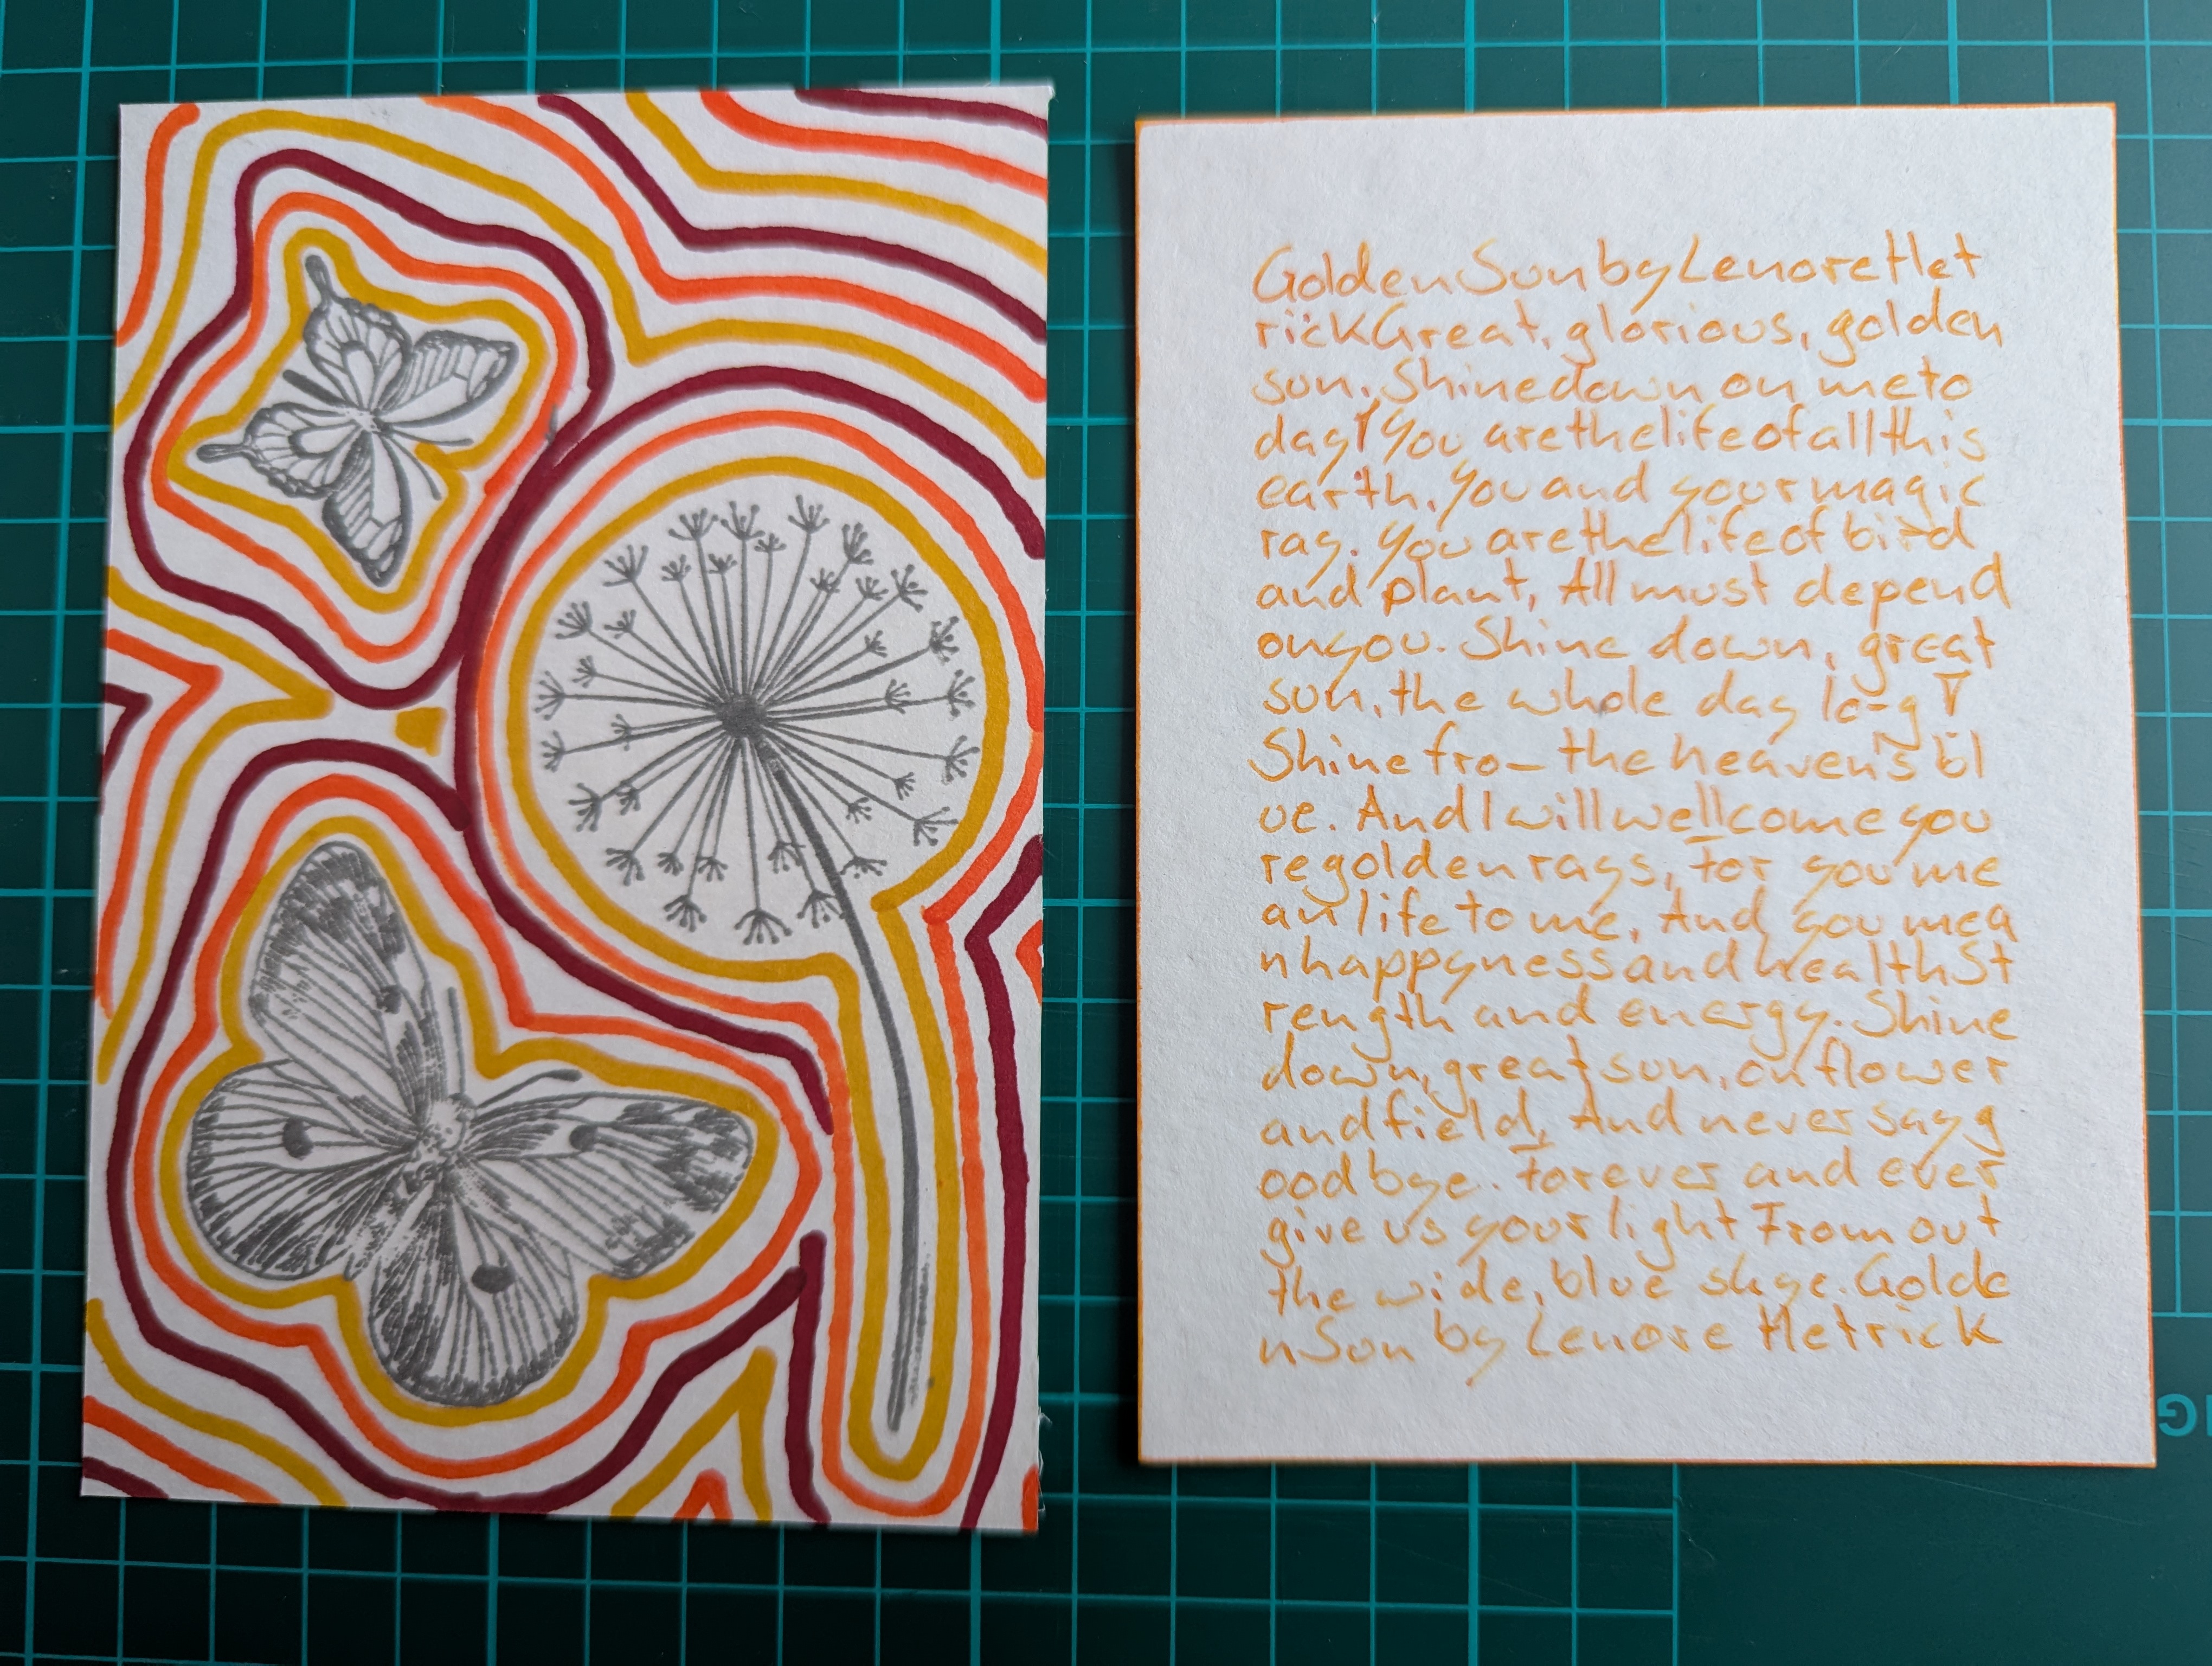 Golden Sun by Lenore Het
rick Great, glorious, golden
sun. Shine down on me to
day! You are the life of all this
earth. You and your magic
ray. You are the life of bird
and plant, All must depend
on you. Shine down, great
sun, the whole day long!
Shine from the heaven's bl
ue. And I will wellcome you
re golden rays, For you me
an life to me, And you mea
n happyness and health St
rength and energy. Shine
down, great sun, on flower
and field, And never say g
ood bye. Forever and ever
give us your light From out
the wide, blue skye. Golde
n Sun by Lenore Hetrick